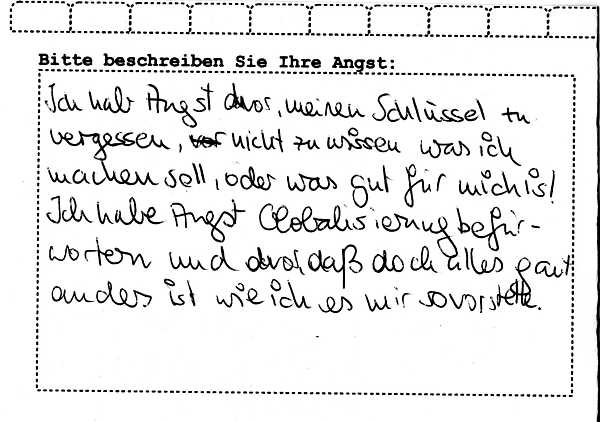 Bitte beschreiben Sie Ihre Angst:
Ich hab Angst davor, meinen Schlüssel zu
vergessen, vor nicht zu wissen was ich
machen soll, oder was gut für mich is!
Ich habe Angst Globalisierungbefür-
wortern und davor, daß doch alles ganz
anders ist wie ich es mir so vorstelle.